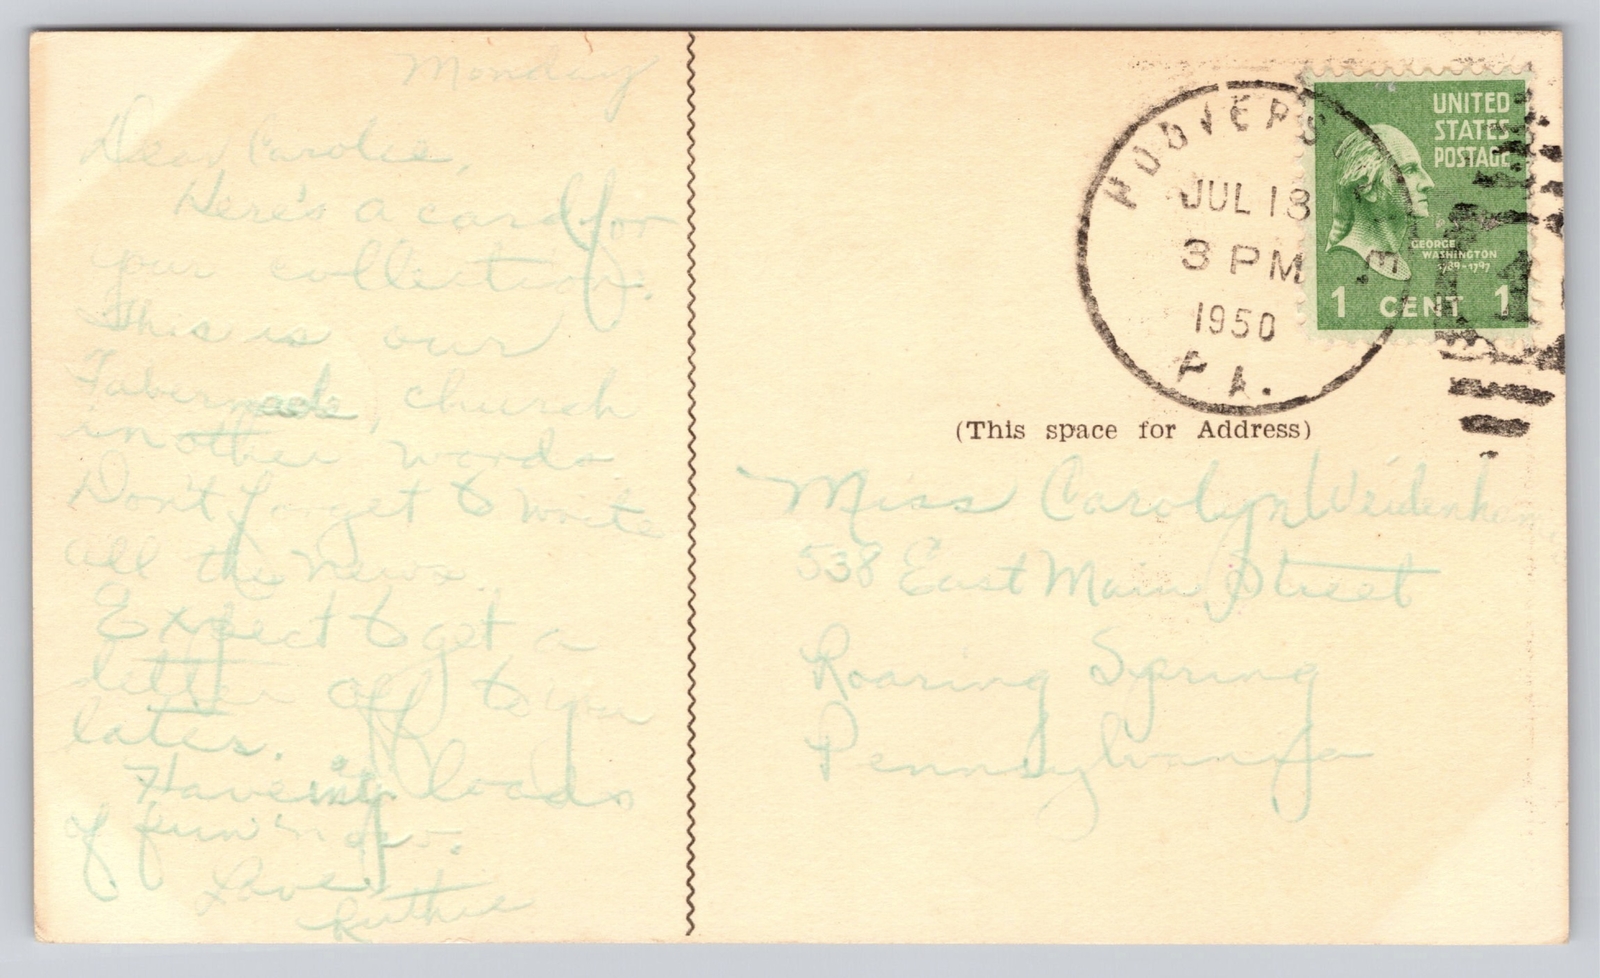 Monday
Dear Carolie,
Here's a card for
your collection.
This is our
Tabernacle, church
in other words
Don't forget to write
all the news.
Expect to get a
letter off to you
later.
Having loads
of fun
Love,
Ruthie
HOOVERSVILLE
JUL 18
3 PM
1950
PA.
UNITED
STATES
POSTAGE
GEORGE
WASHINGTON
1789-1797
1 CENT 1
(This space for Address)
Miss Carolyn
538 East Main Street
Roaring Spring
Pennsylvania